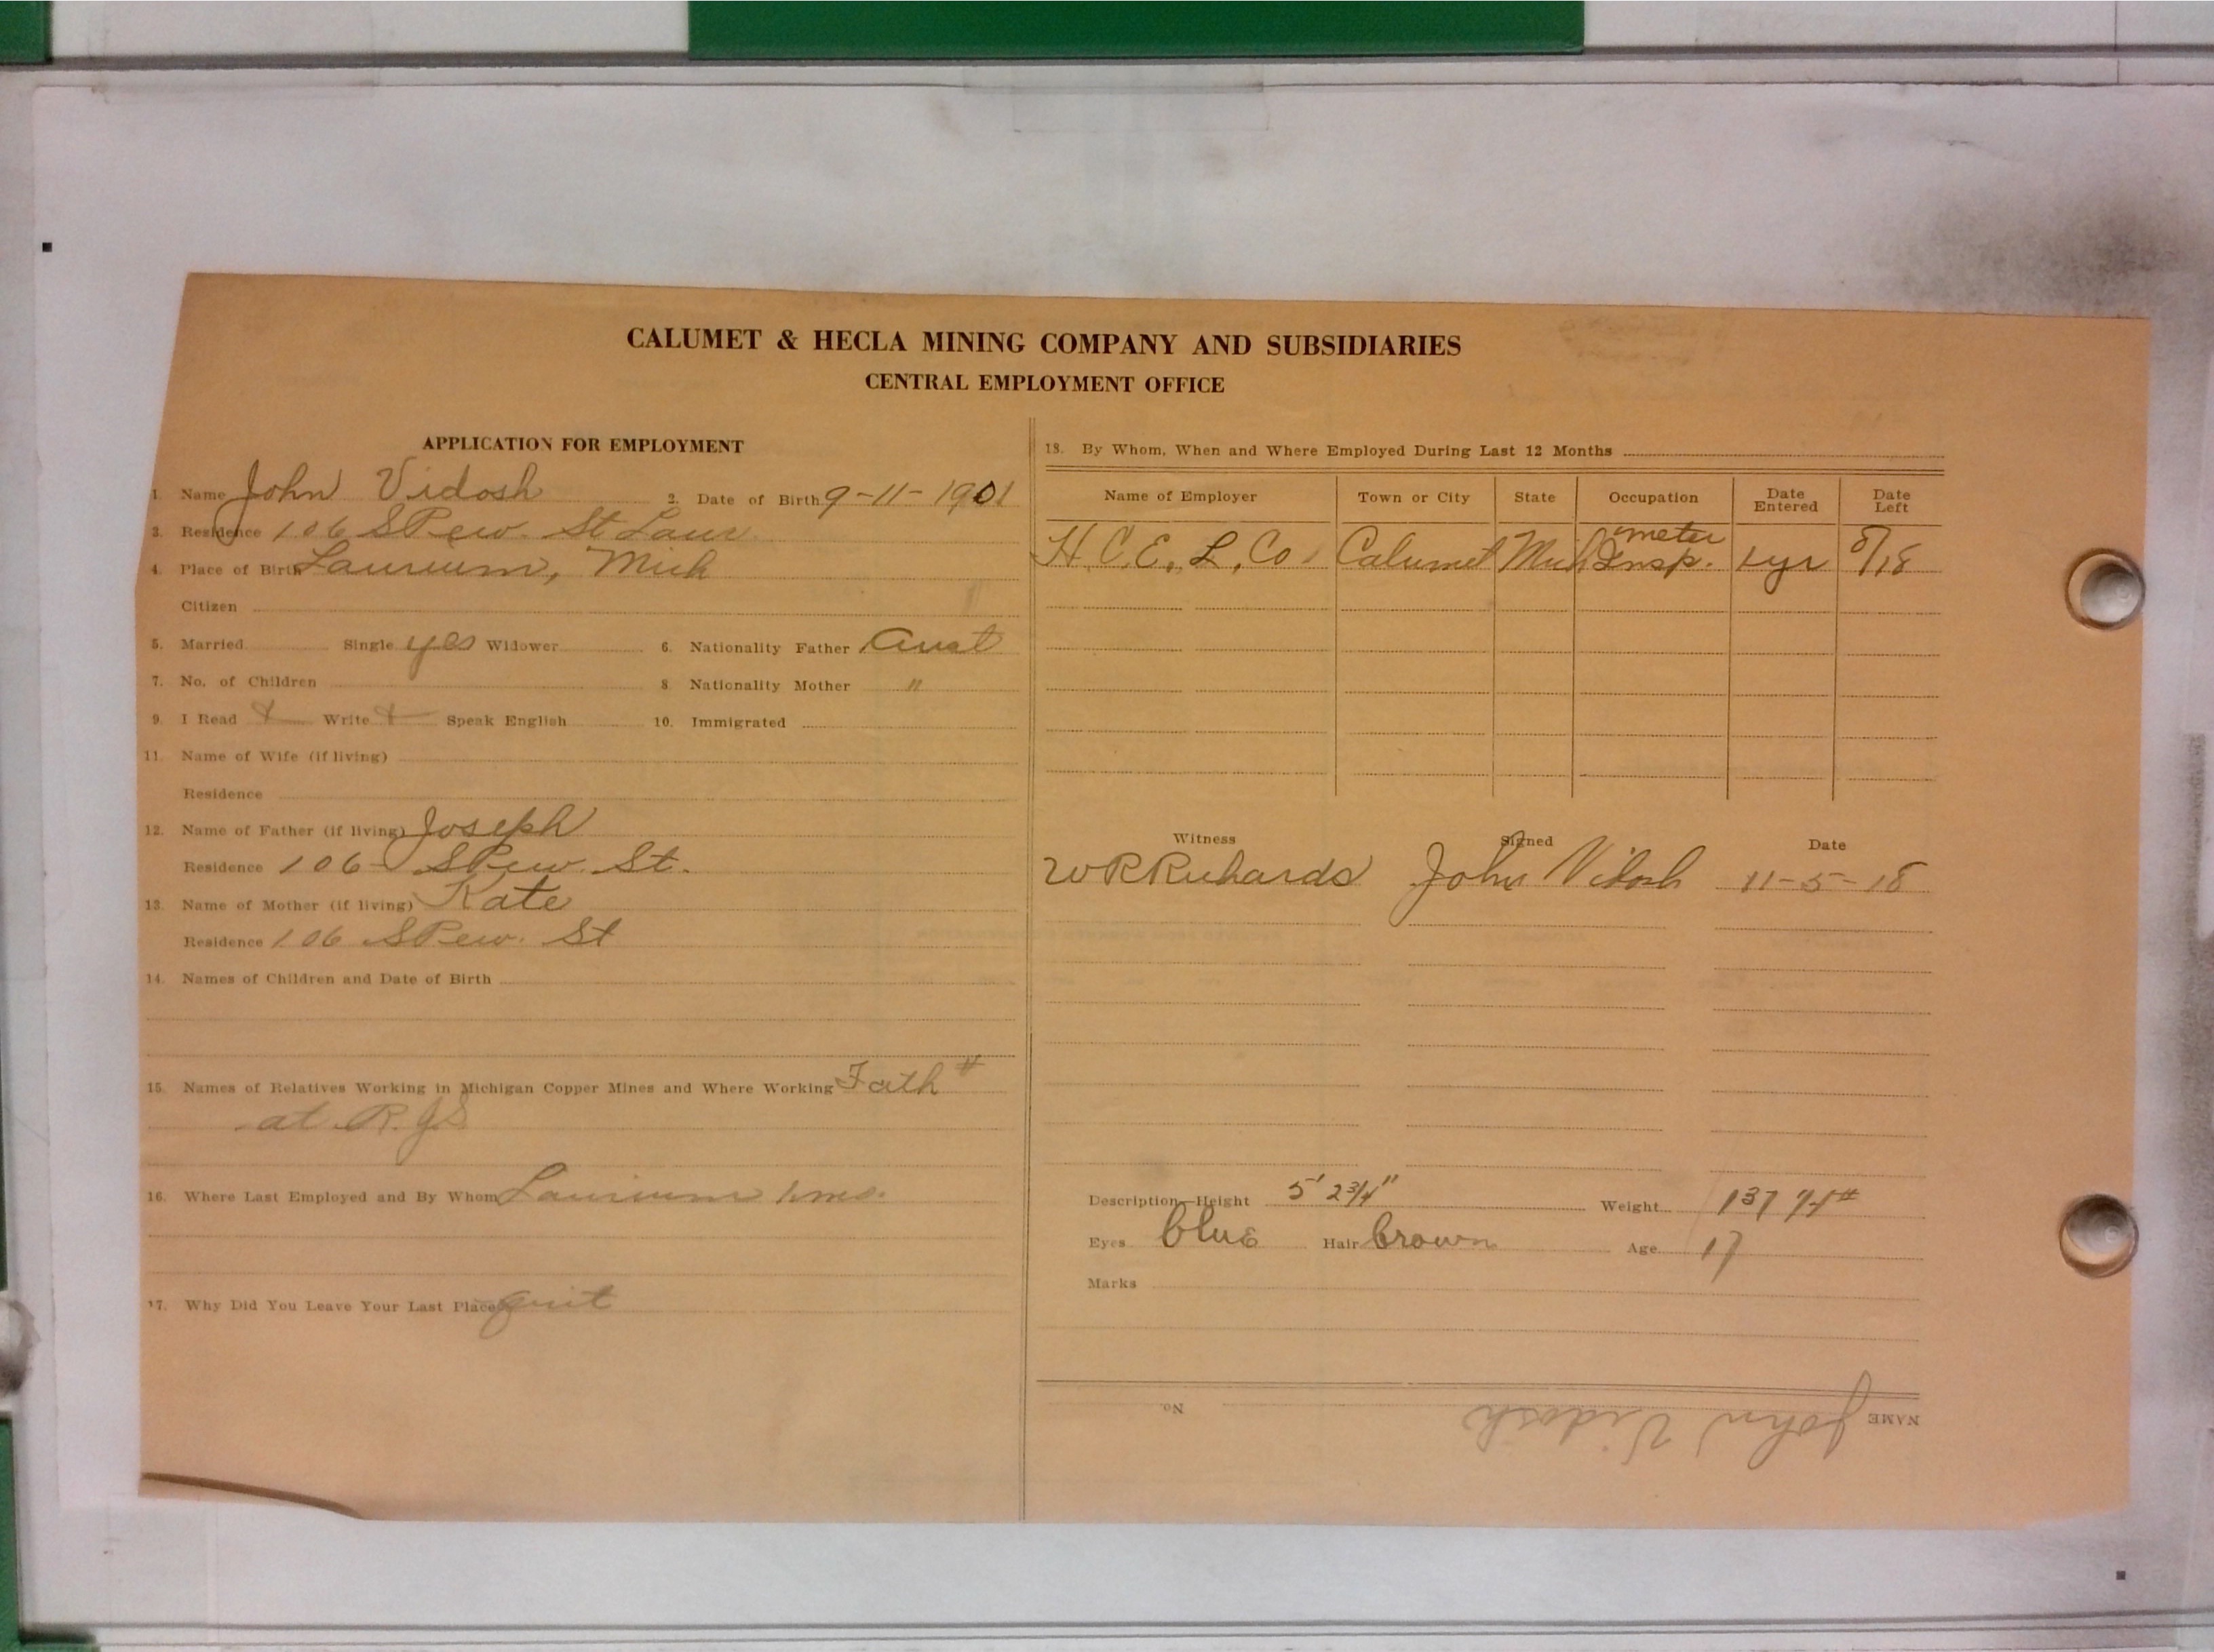 CALUMET & HECLA MINING COMPANY AND SUBSIDIARIES
CENTRAL EMPLOYMENT OFFICE
APPLICATION FOR EMPLOYMENT
1. Name John Vidosh 2. Date of Birth 9-11-1901
3. Residence 106 S Pew. St Laur
4. Place of Birth Laurium, Mich
Citizen
5. Married Single yes Widower 6. Nationality Father Aust
7. No. of Children 8 Nationality Mother "
9. I Read Write Speak English 10. Immigrated
11. Name of Wife (if living)
Residence
12. Name of Father (if living) Joseph
Residence 106 S Pew. St.
13. Name of Mother (if living) Kate
Residence 106 S Pew. St
14. Names of Children and Date of Birth
15. Names of Relatives Working in Michigan Copper Mines and Where Working Fath #
at R.
16. Where Last Employed and By Whom Laurium
17. Why Did You Leave Your Last Place quit
18. By Whom, When and Where Employed During Last 12 Months
Name of Employer Town or City State Occupation Date Entered Date Left
H.C.E.L.Co. Calumet Mich meter Insp. 1 yr 8/18
Witness Signed Date
W R Richards John Vidosh 11-5-18
Description—Height 5' 2 3/4" Weight 137
Eyes blue Hair brown Age 17
Marks
NAME John Vidosh No.